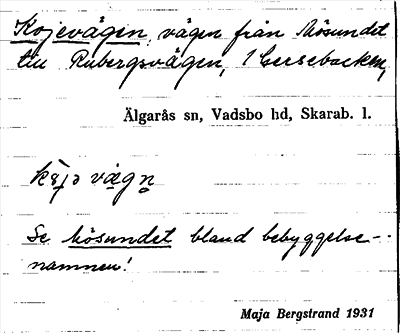 Kojevägen, vägen från Mösundet
till Rubergsvägen,
Älgarås sn, Vadsbo hd, Skarab. l.
Se Mösundet bland bebyggelse-
namnen!
Maja Bergstrand 1931